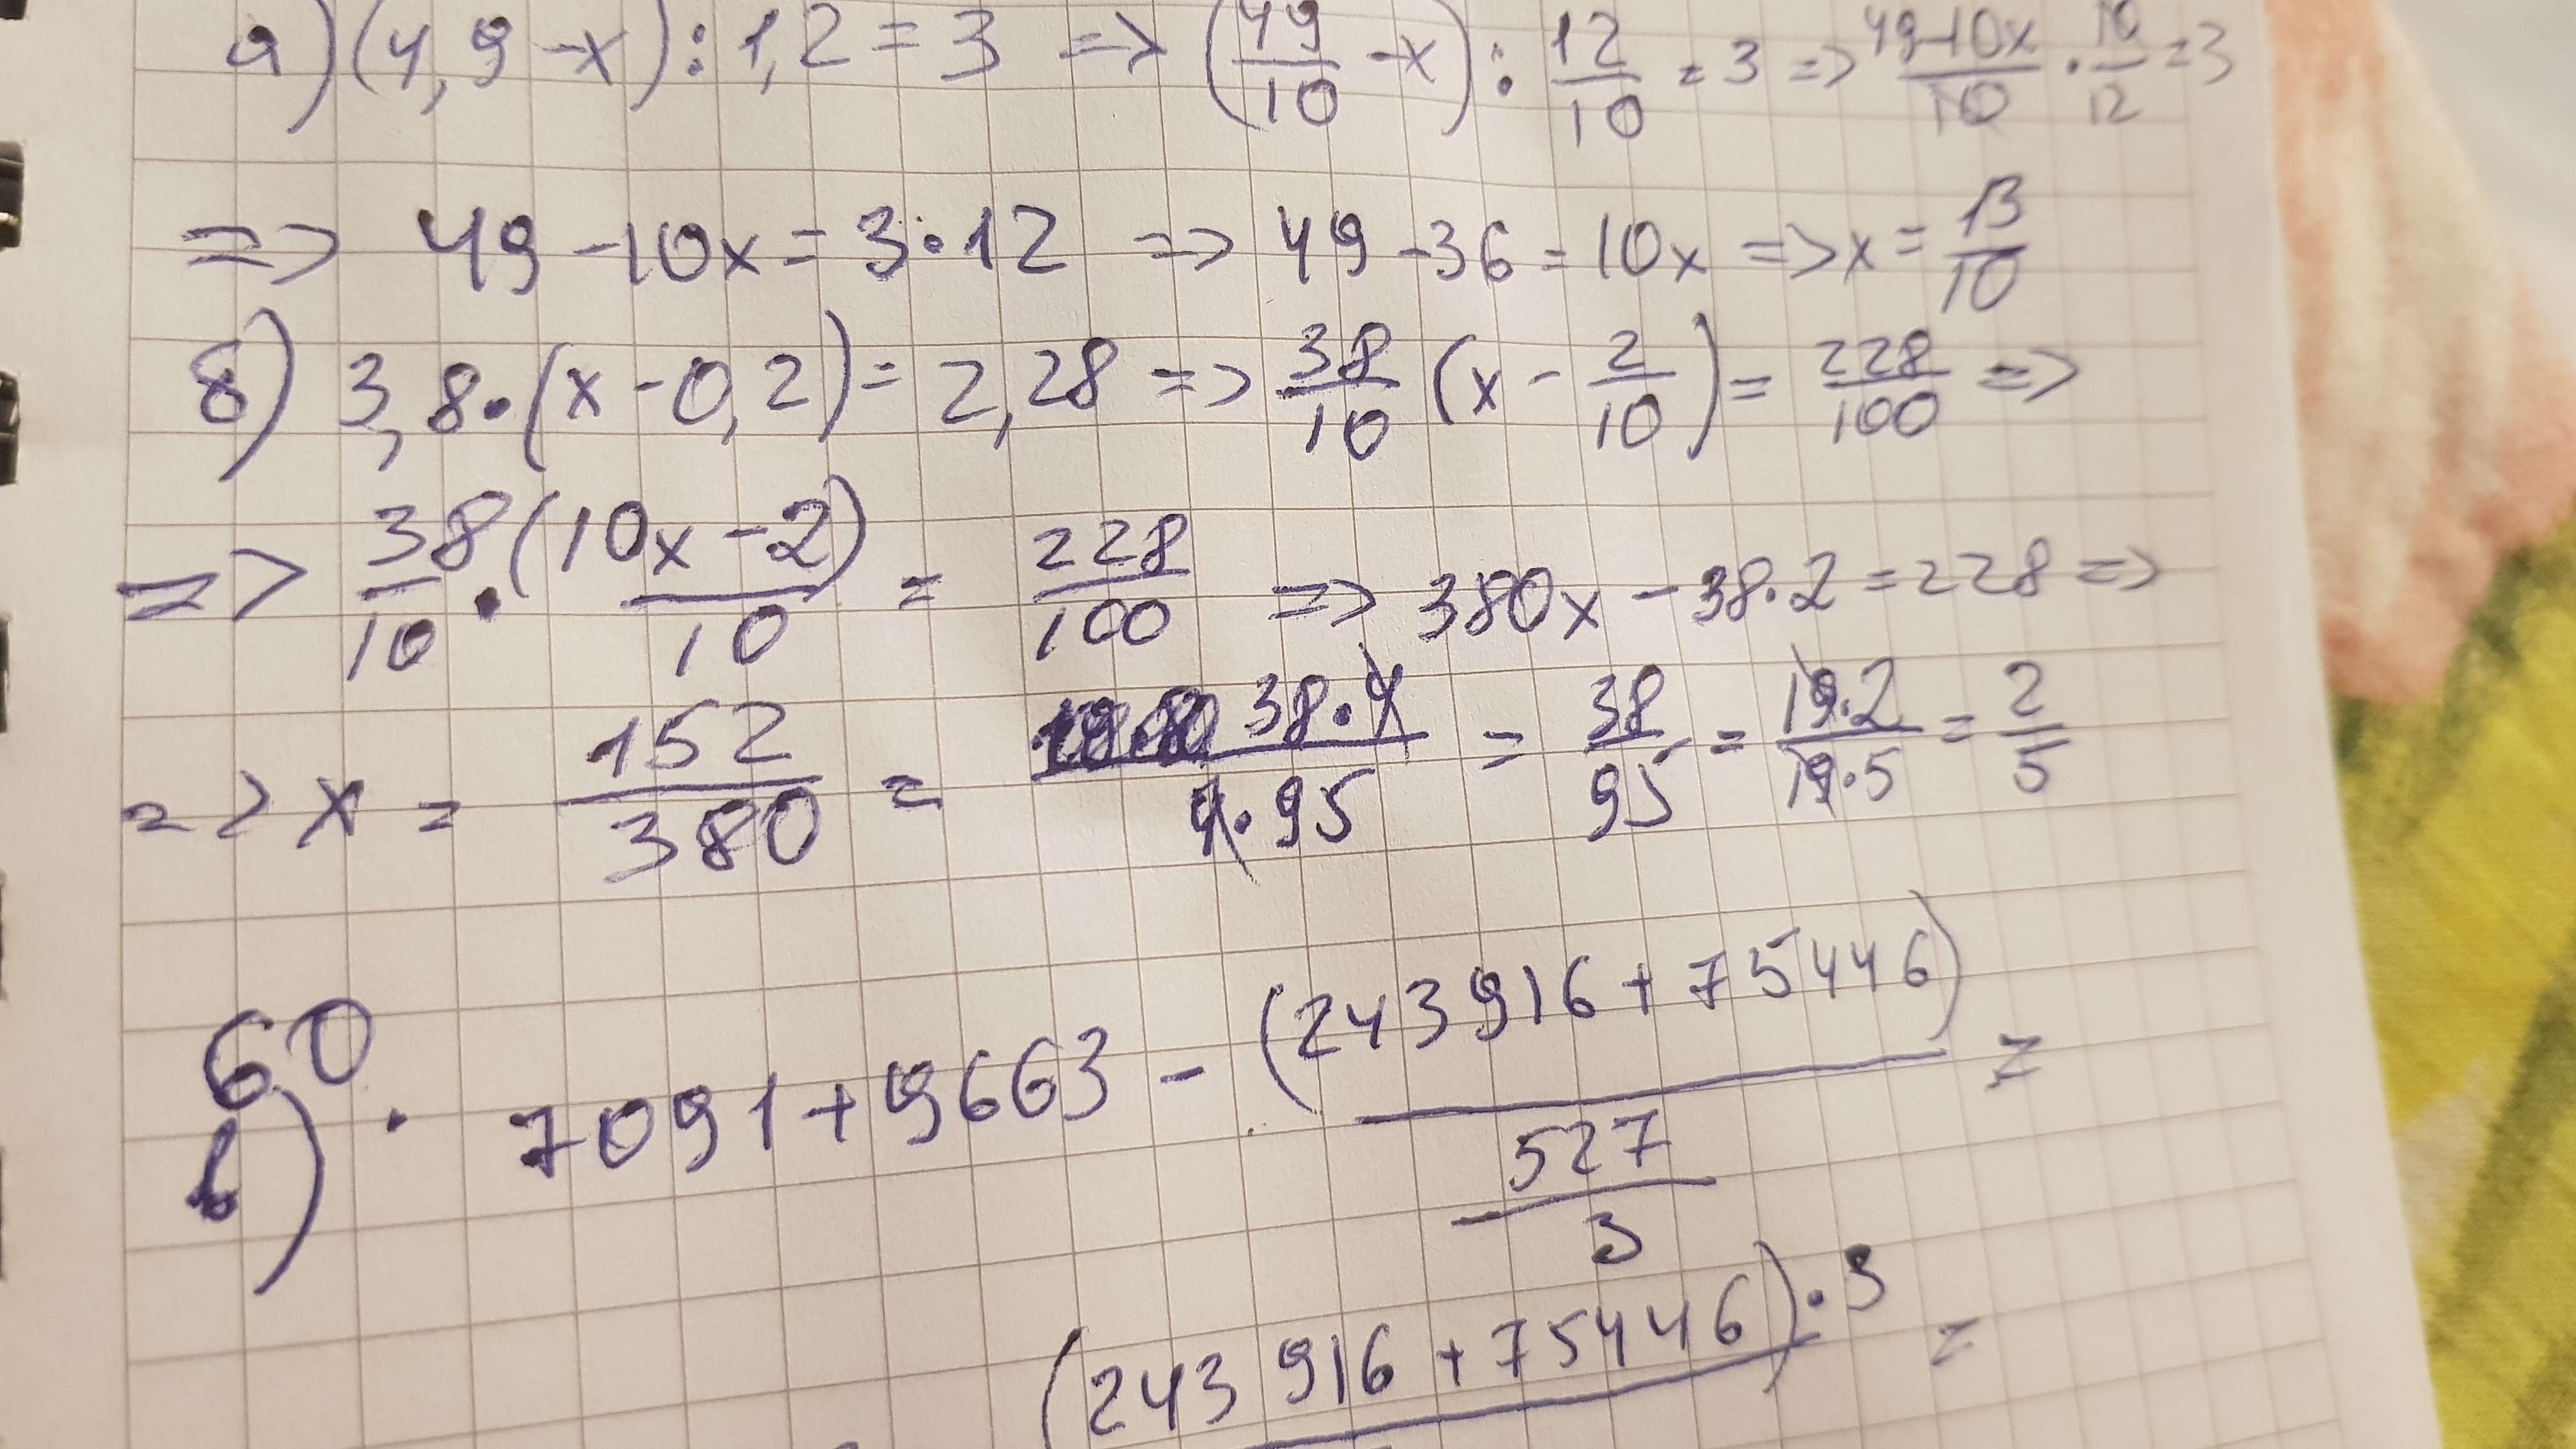 а) (4,9 - x) : 1,2 = 3 => (49/10 - x) : 12/10 = 3 => 49-10x/10 · 10/12 = 3
=> 49 - 10x = 3·12 => 49 - 36 = 10x => x = 13/10
б) 3,8·(x - 0,2) = 2,28 => 38/10 (x - 2/10) = 228/100 =>
=> 38/10 · (10x - 2)/10 = 228/100 => 380x - 38·2 = 228 =>
=> x = 152/380 = 38·4/4·95 = 38/95 = 19·2/19·5 = 2/5
60
б) · 7091 + 9663 - (243916 + 75446)/(527/3) =
(243 916 + 75446)·3 =